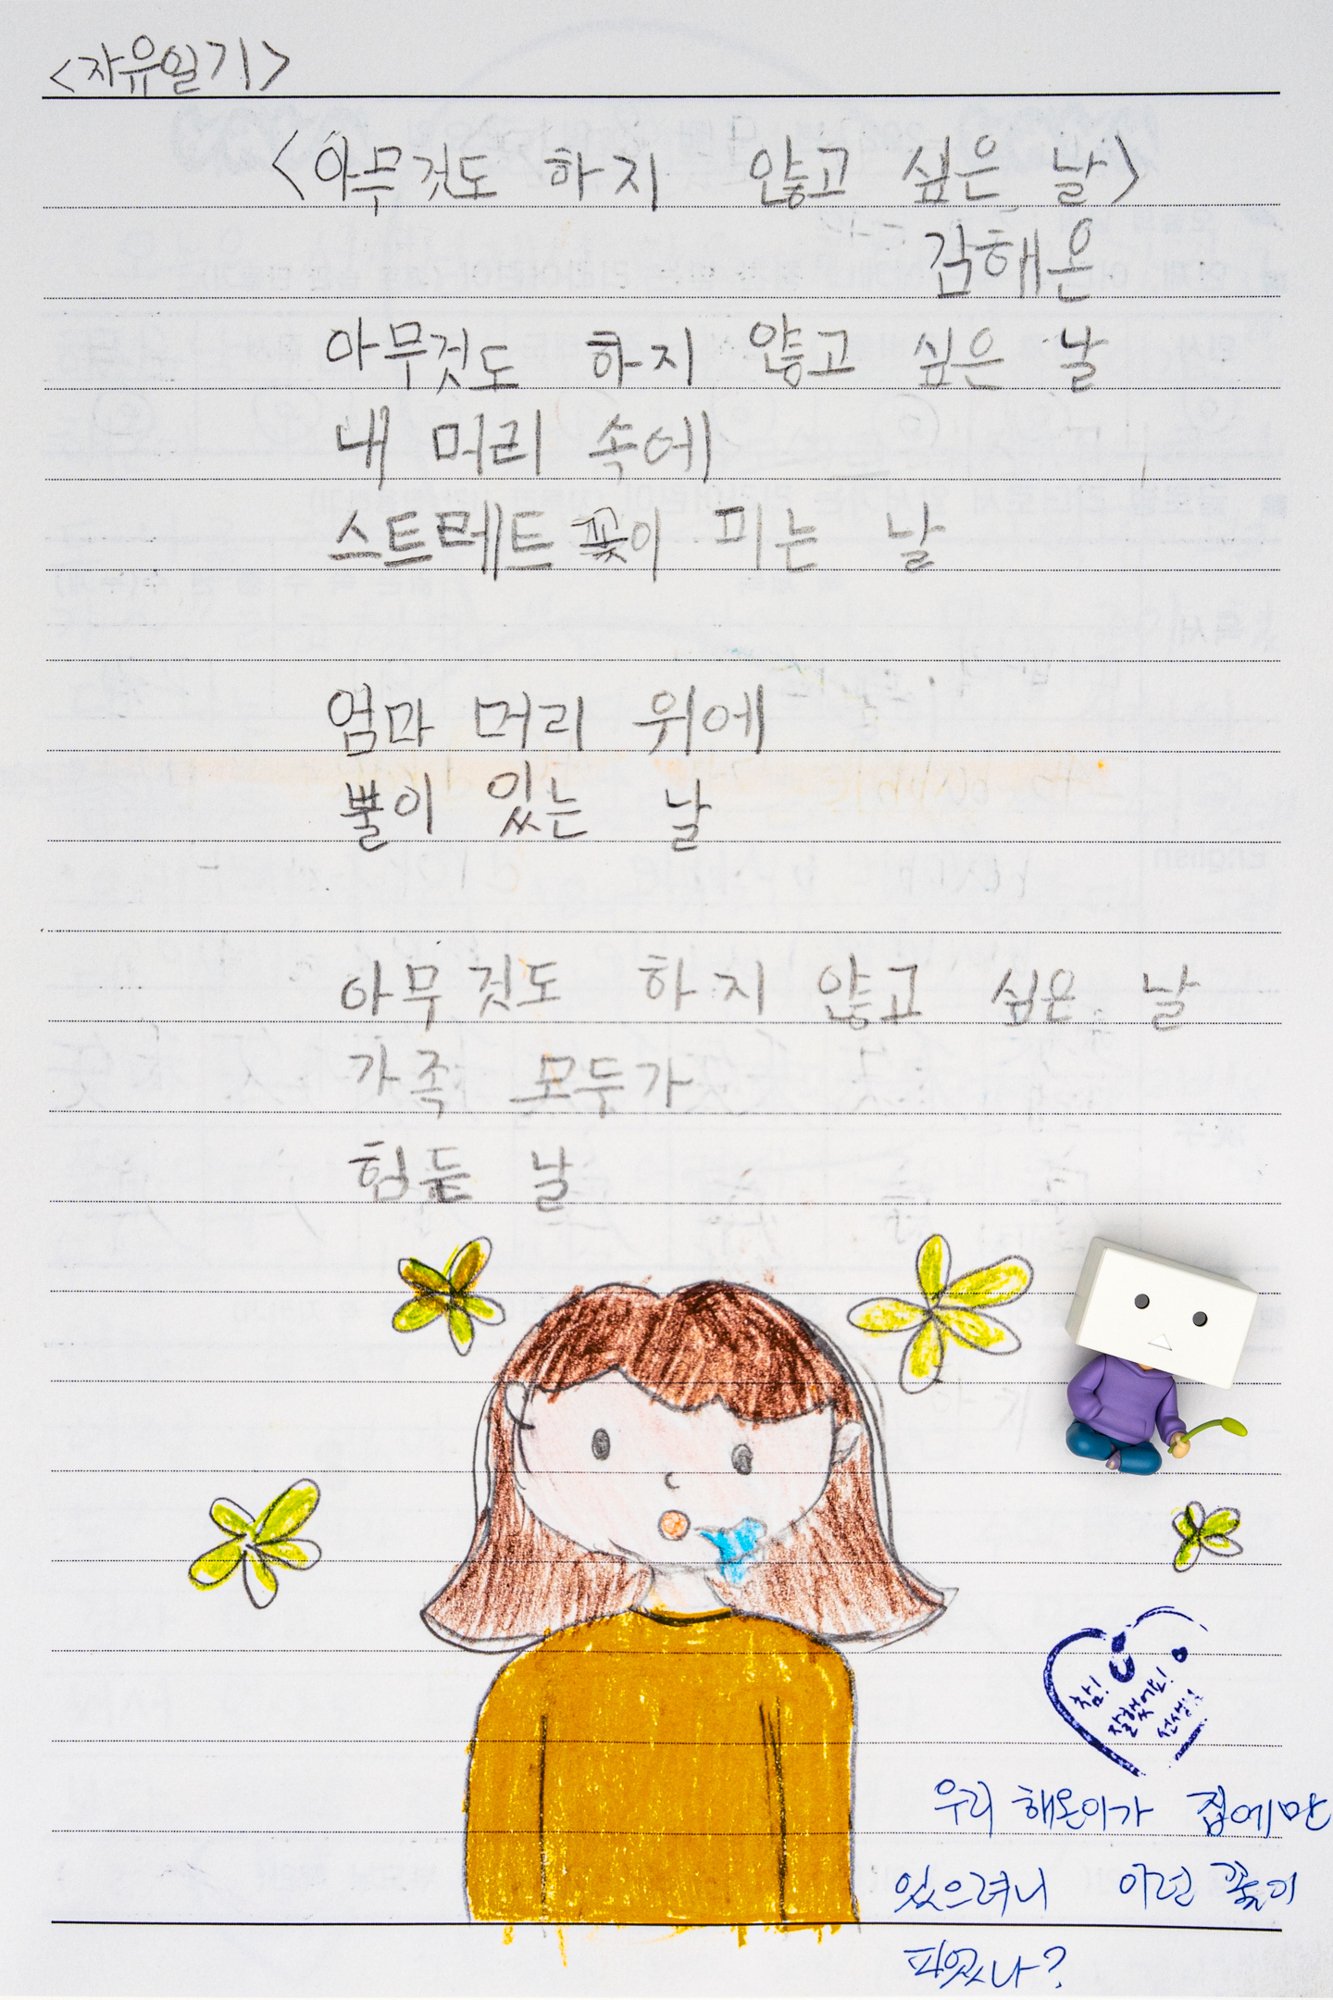 <자유일기>
<아무것도 하지 않고 싶은 날>
김해온
아무것도 하지 않고 싶은 날
내 머리 속에
스트레트 꽃이 피는 날
엄마 머리 위에
뿔이 있는 날
아무것도 하지 않고 싶은 날
가족 모두가
힘든 날
참!
잘했어요!
선생님
우리 해온이가 집에만
있으려니 이런 꽃이
피었나?